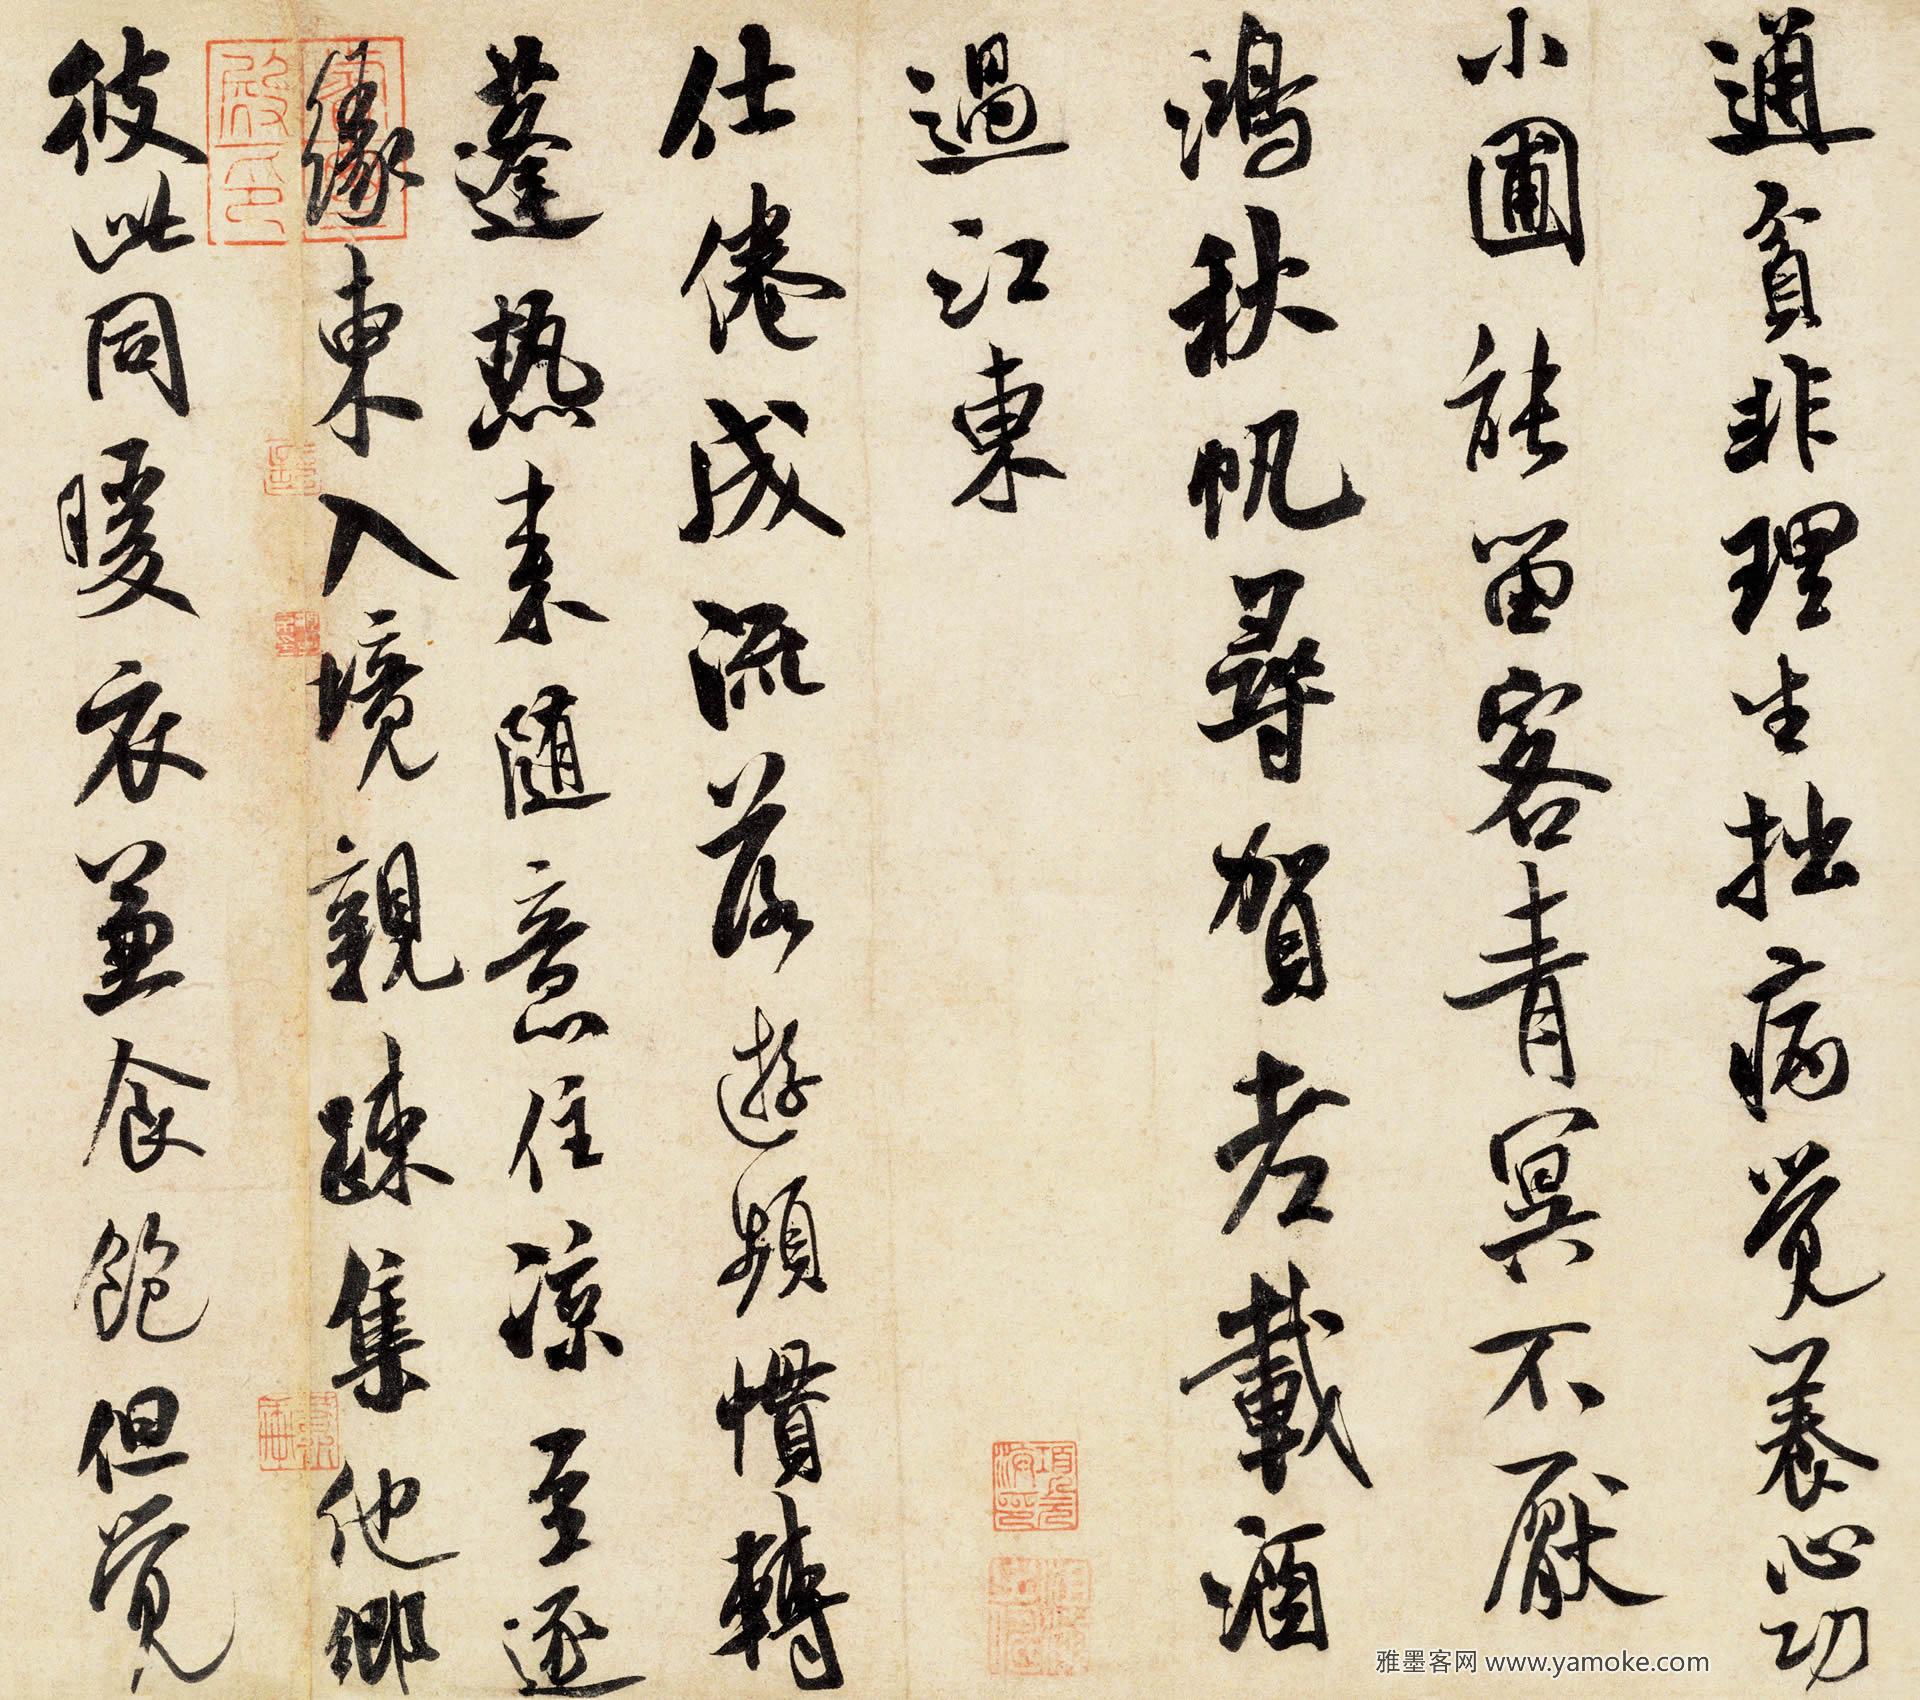 通貧非理生拙病覺養心功
小圃能留客青冥不厭
鴻秋帆尋賀老載酒
過江東
仕倦成流落遊頻慣轉
蓬熱來隨意住涼至逐
緣東入境親疎集他鄉
彼此同暖衣兼食飽但覺
雅墨客网 www.yamoke.com